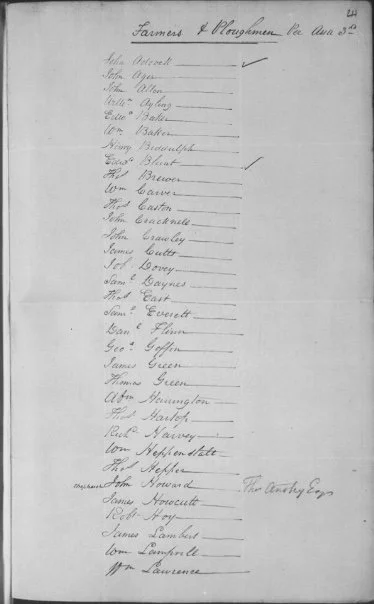 24
Farmers & Ploughmen Per Asia 3rd
John Adcock
John Ager
John Allen
Willm Ayling
Edwd Baker
Wm Baker
Henry Biddulph
Edwd Blunt
Thos Brewer
Wm Carver
Thos Caston
John Cracknels
John Crawley
James Cutts
Job Dovey
Saml Daynes
Thos East
Saml Everett
Danl Flinn
Geoe Goffin
James Green
Thomas Green
Abm Harrington
Thos Hartop
Richd Harvey
Wm Heppenstall
Thos Hepper
John Howard Thos Anstey Esqr
James Howcutt
Robt Hoy
James Lambert
Wm
Wm Lawrence